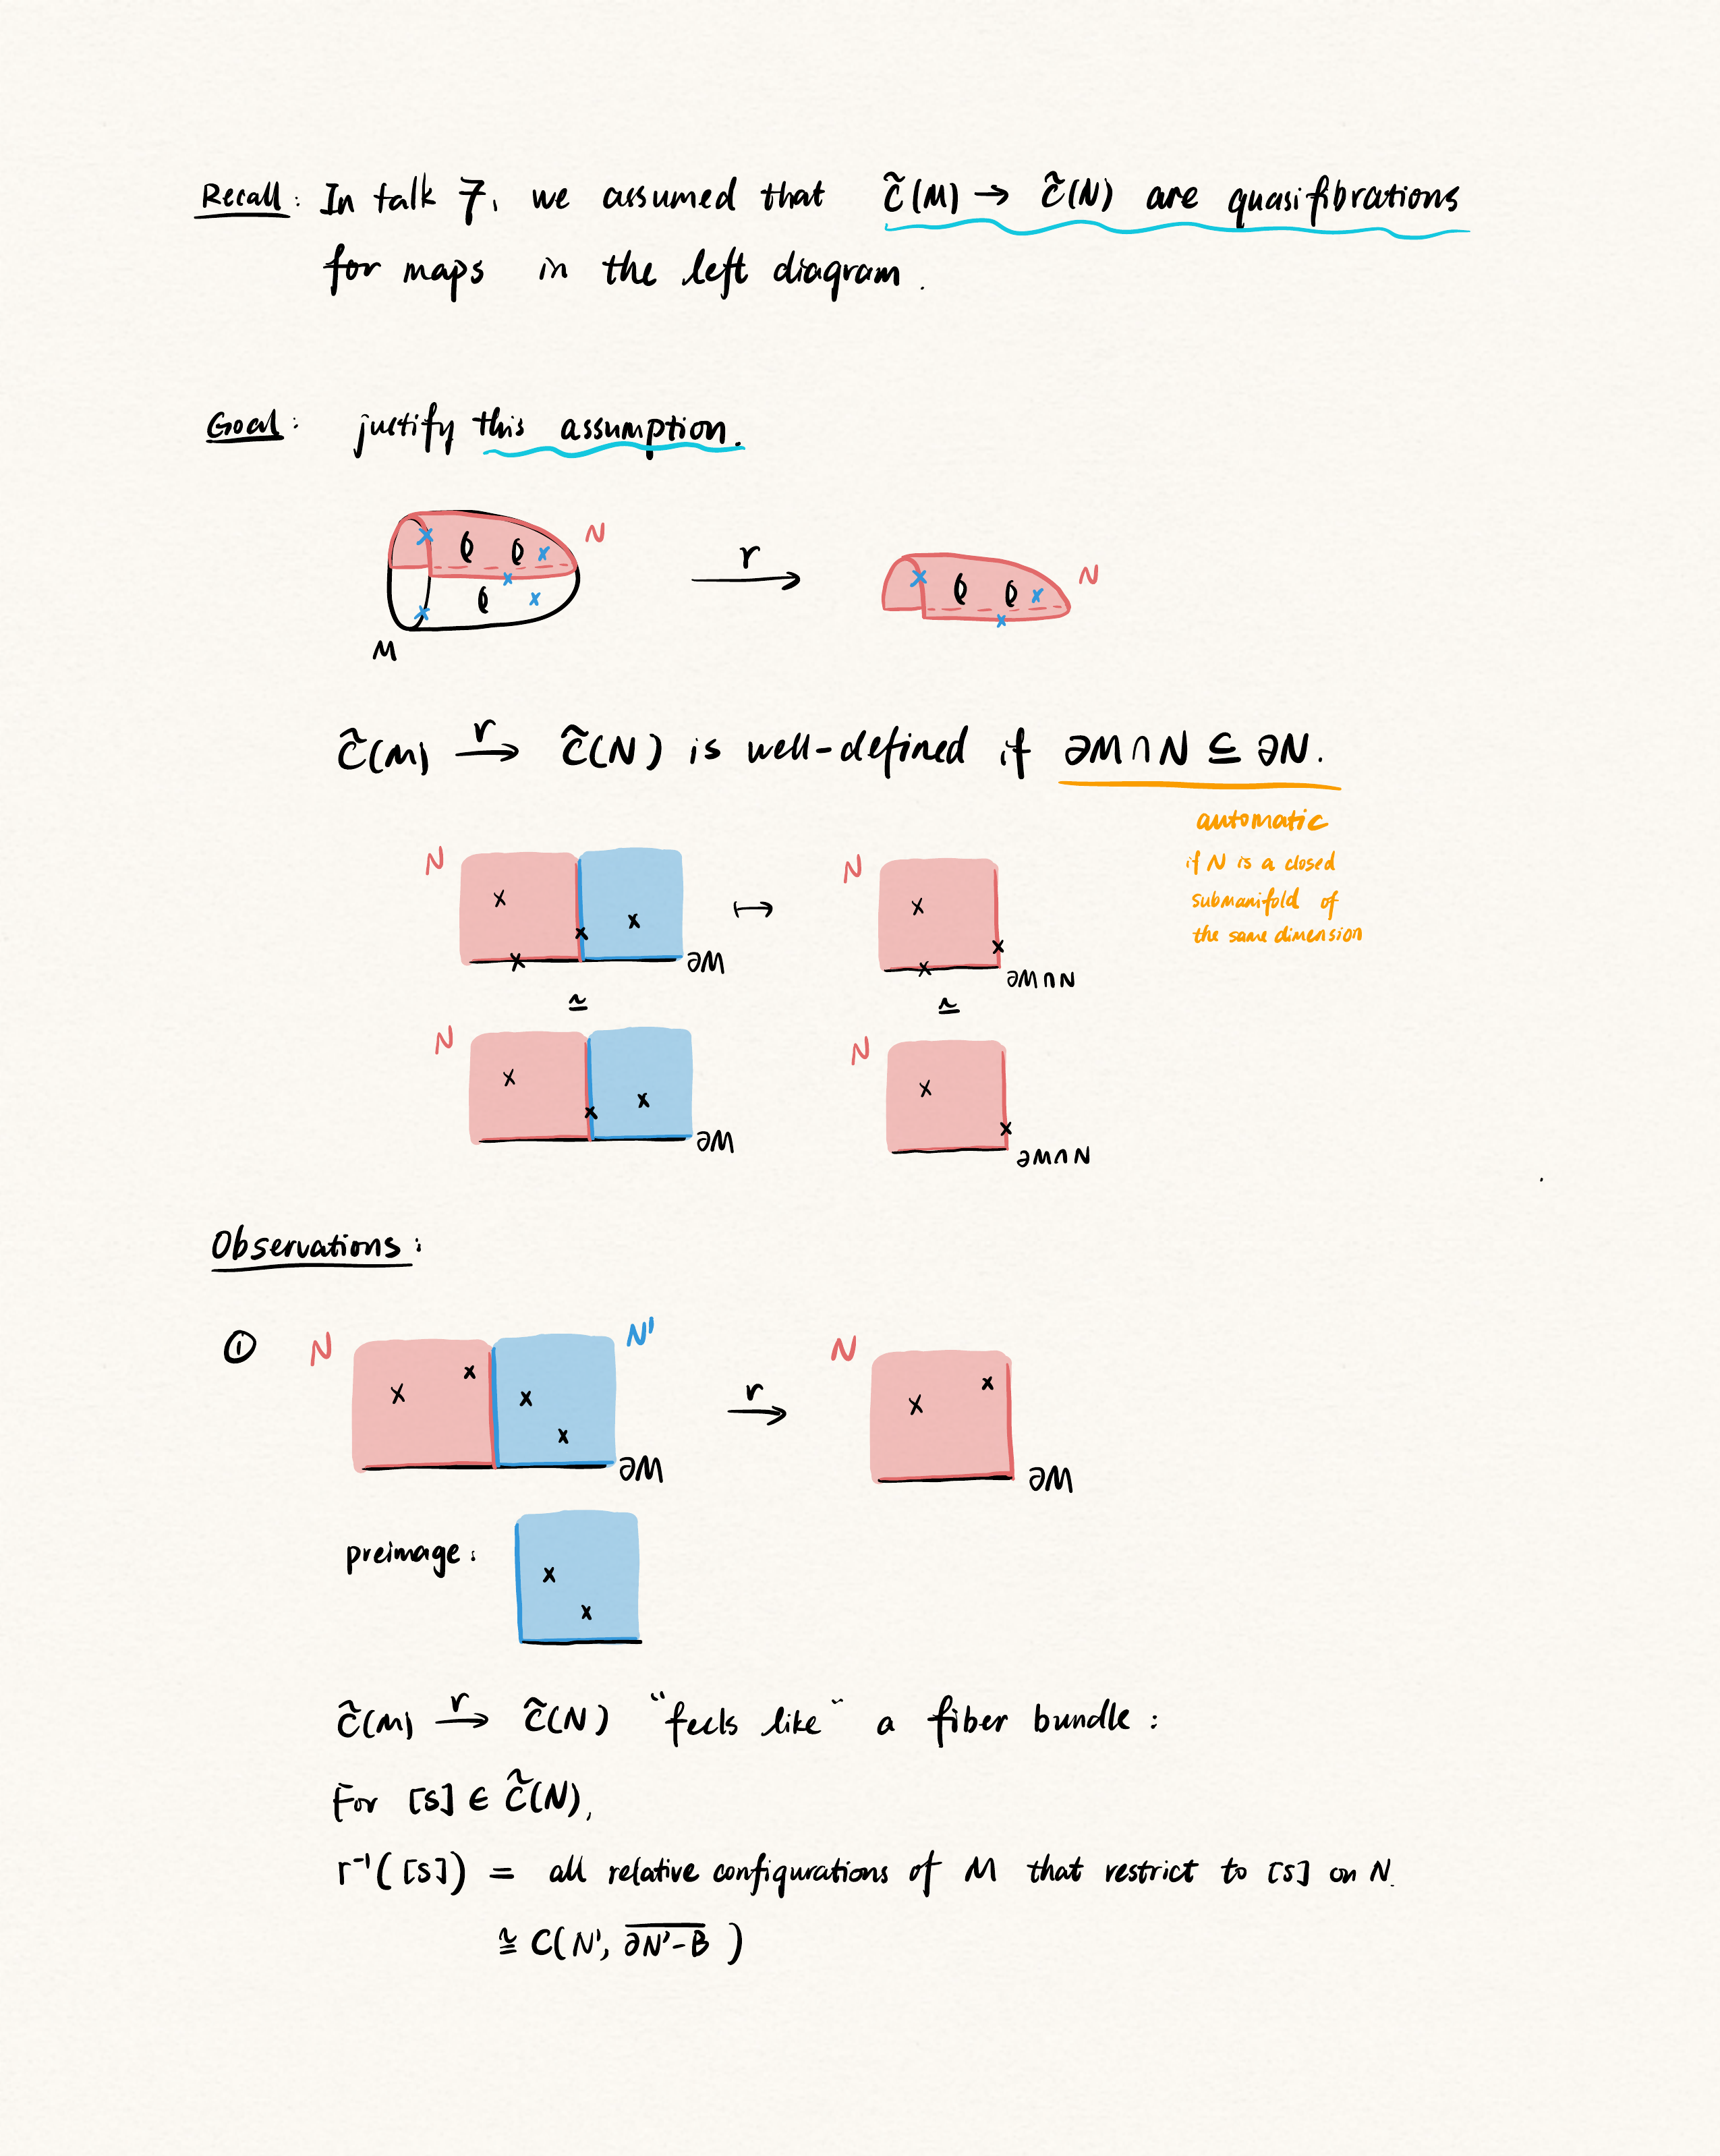 Recall: In talk 7, we assumed that C̃(M) → C̃(N) are quasifibrations
for maps in the left diagram.
Goal: justify this assumption.
N
r
N
M
C̃(M) r→ C̃(N) is well-defined if ∂M∩N ⊆ ∂N.
automatic
if N is a closed
submanifold of
the same dimension
N
N
↦
∂M
∂M∩N
≃
≃
N
N
∂M
∂M∩N
Observations:
① N N'
N
r→
∂M
∂M
preimage:
C̃(M) r→ C̃(N) "feels like" a fiber bundle:
For [S] ∈ C̃(N),
r⁻¹([S]) = all relative configurations of M that restrict to [S] on N.
≅ C(N', \overline{∂N'-B})